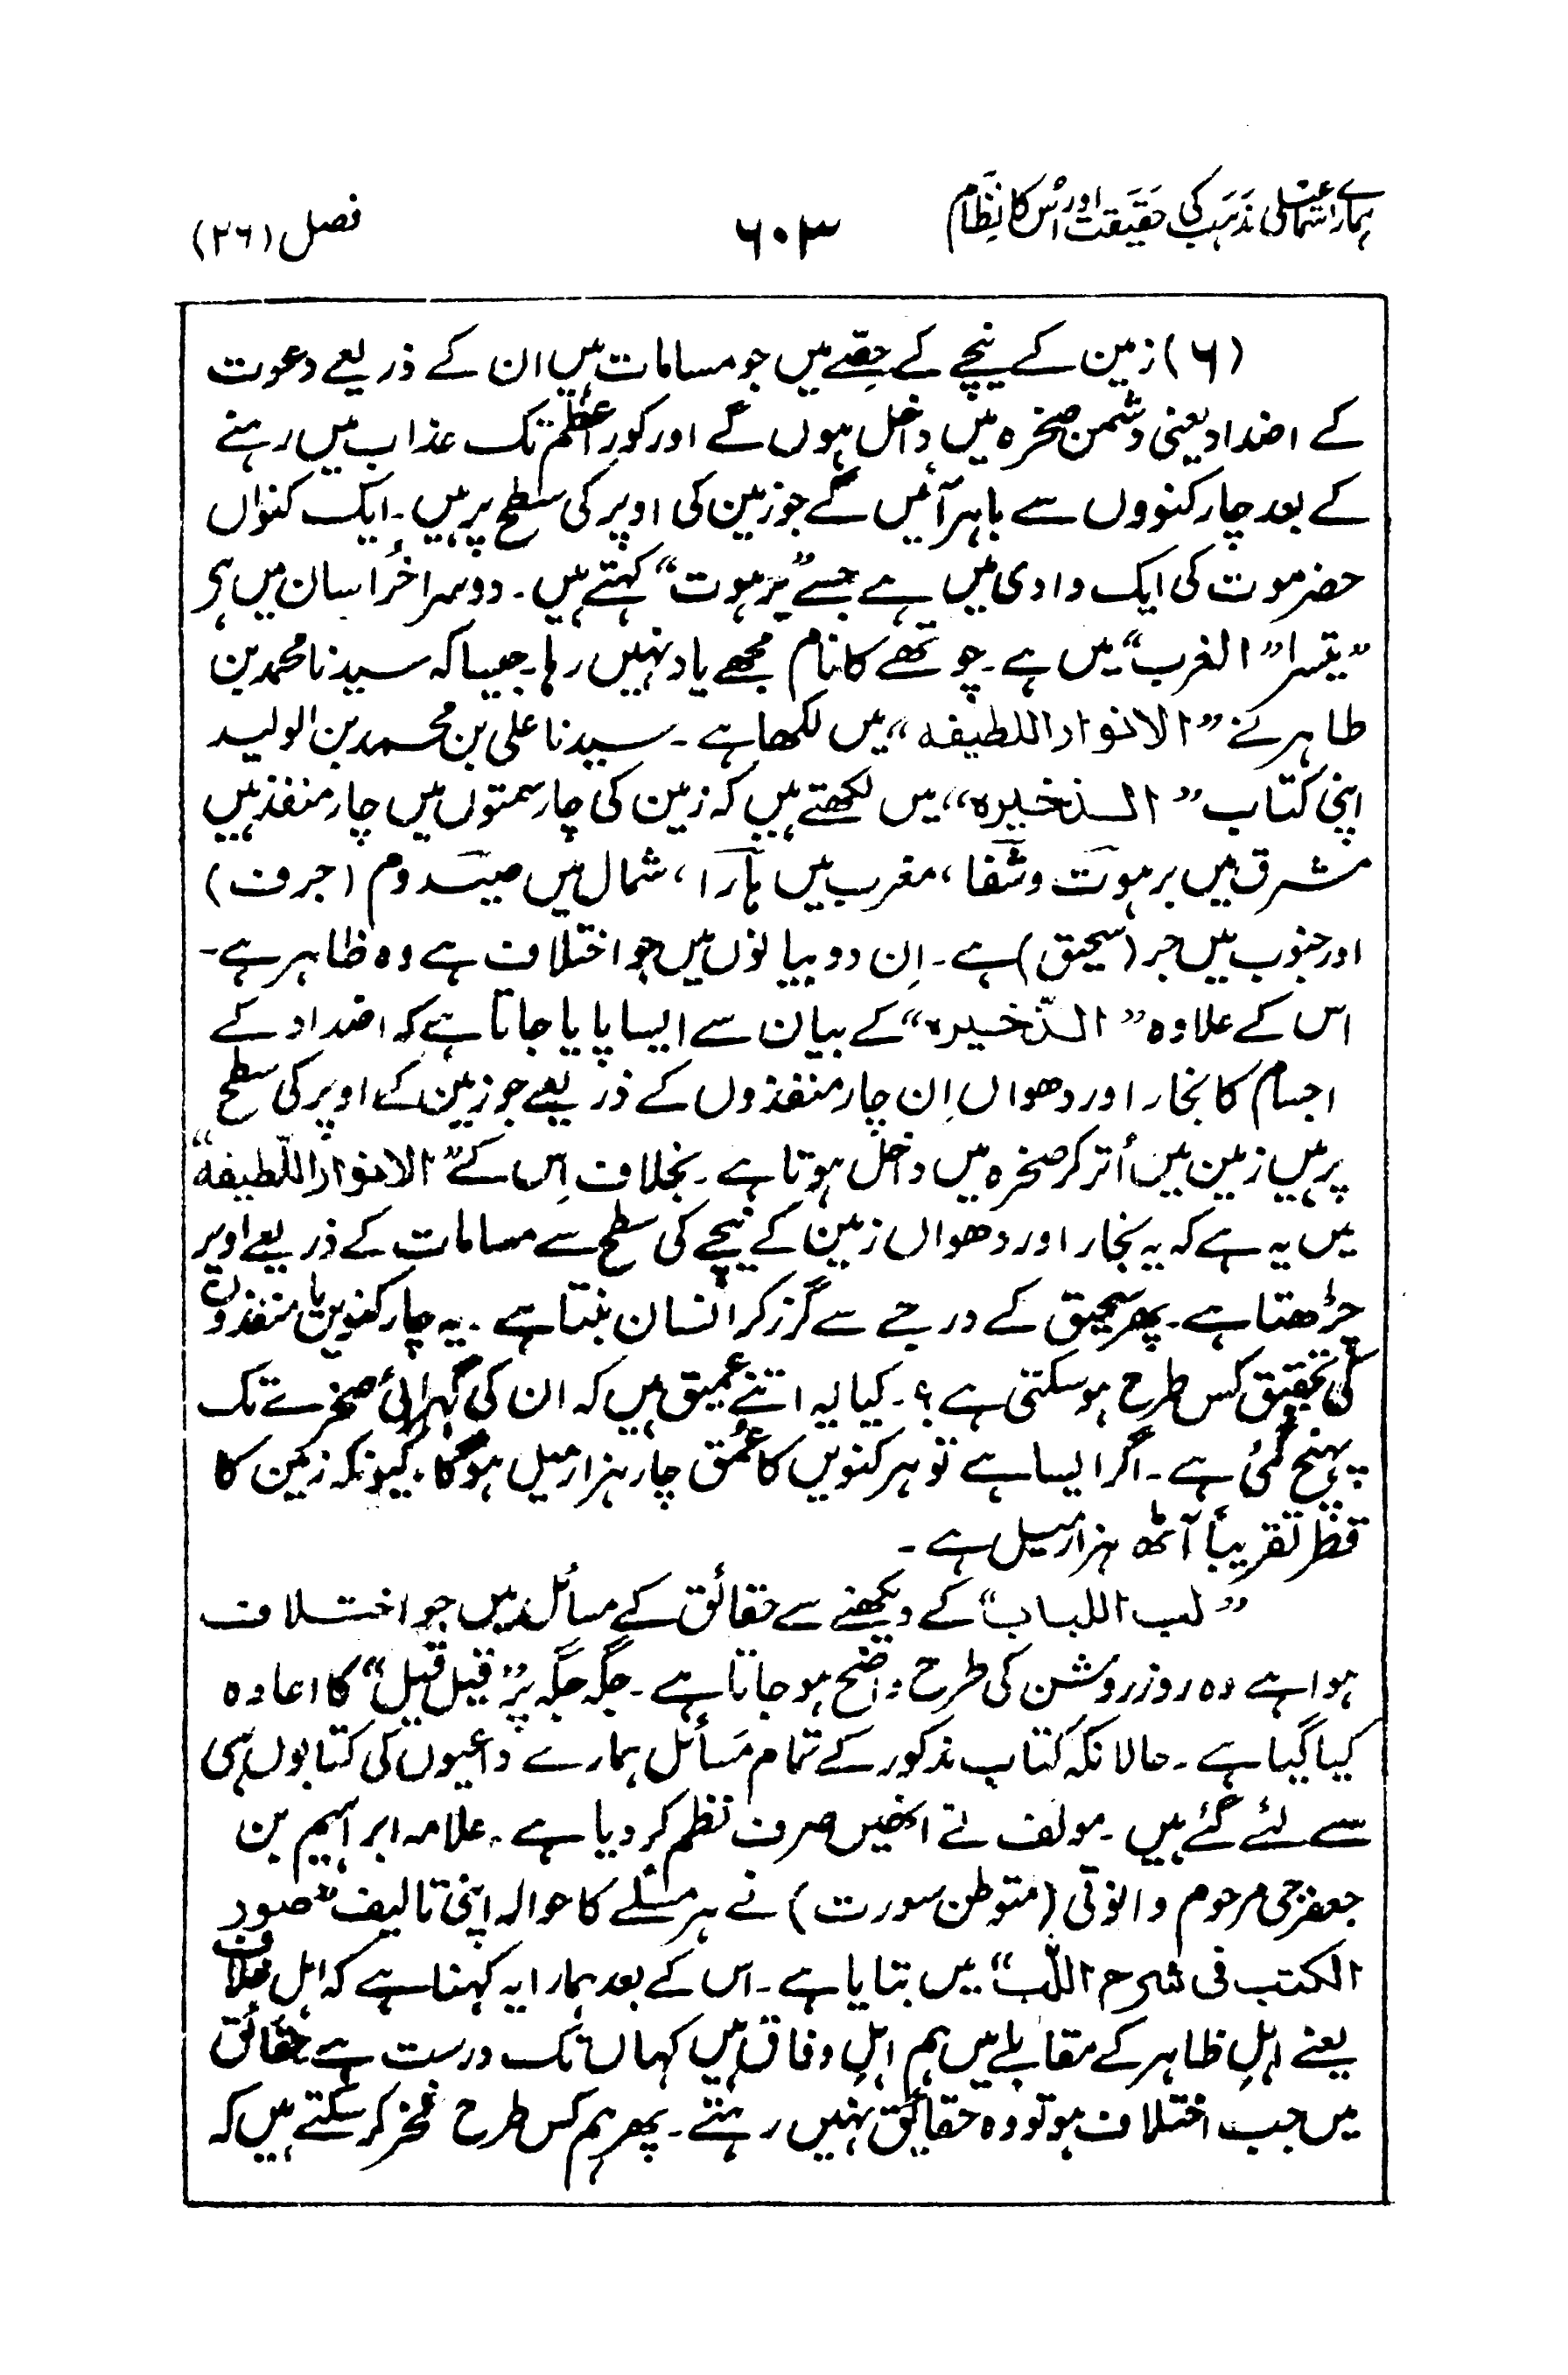 ہمارے اسماعیلی مذہب کی حقیقت اور اُس کا نظام
۶۰۳
فصل (۲۶)
(۶) زمین کے نیچے کے حِصّے میں جو مسامات ہیں ان کے ذریعے دعوت
کے اضداد یعنی دشمن صخرہ میں داخل ہوں گے اور کورِ اعظم تک عذاب میں رہنے
کے بعد چار کنووں سے باہر آئیں گے جو زمین کی اوپر کی سطح پر ہیں۔ ایک کنواں
حضر موت کی ایک وادی میں ہے جسے ”برہوت“ کہتے ہیں۔ دوسرا خُراسان میں ہے
”تیسرا“ الغرب“ میں ہے۔ چوتھے کا نام مجھے یاد نہیں رہا۔ جیسا کہ سیدنا محمد بن
طاہر نے ”الانوار اللطیفہ“ میں لکھا ہے۔ سیدنا علی بن محمد بن الولید
اپنی کتاب ”الذخیرہ“ میں لکھتے ہیں کہ زمین کی چار سمتوں میں چار منفذ ہیں
مشرق میں برہوت و شفا، مغرب میں ہارا، شمال میں صیدوم (جرف)
اور جنوب میں جر (سحیق) ہے۔ اِن دو بیانوں میں جو اختلاف ہے وہ ظاہر ہے۔
اس کے علاوہ ”الذّخیرہ“ کے بیان سے ایسا پایا جاتا ہے کہ اضداد کے
اجسام کا بخار اور دھواں اِن چار منفذوں کے ذریعے جو زمین کے اوپر کی سطح
پر ہیں زمین میں اُتر کر صخرہ میں داخل ہوتا ہے۔ بخلاف اِس کے ”الانوار اللّطیفہ“
میں یہ ہے کہ یہ بخار اور دھواں زمین کے نیچے کی سطح سے مسامات کے ذریعے اوپر
چڑھتا ہے۔ پھر سحیق کے درجے سے گزر کر انسان بنتا ہے۔ یہ چار کنویں یا منفذوں
کی تحقیق کس طرح ہو سکتی ہے؟۔ کیا یہ اتنے عمیق ہیں کہ ان کی گہرائی صخرے تک
پہنچ گئی ہے۔ اگر ایسا ہے تو ہر کنویں کا عُمُق چار ہزار میل ہوگا۔ کیونکہ زمین کا
قطر تقریباً آٹھ ہزار میل ہے۔
”لب اللباب“ کے دیکھنے سے حقائق کے مسائل میں جو اختلاف
ہوا ہے وہ روز روشن کی طرح واضح ہو جاتا ہے۔ جگہ جگہ پر ”قیل قیل“ کا اعادہ
کیا گیا ہے۔ حالانکہ کتاب مذکور کے تمام مَسائل ہمارے داعیوں کی کتابوں ہی
سے لئے گئے ہیں۔ مولف نے انھیں صرف نظم کر دیا ہے۔ علامہ ابراہیم بن
جعفر جی مرحوم وانوٹی (متوطن سورت) نے ہر مسئلے کا حوالہ اپنی تالیف ”صور
الکتب فی شرح اللّب“ میں بتایا ہے۔ اس کے بعد ہمارا یہ کہنا ہے کہ اہل خلاف
یعنے اہلِ ظاہر کے مقابلے میں ہم اہلِ وفاق ہیں کہاں تک درست ہے حقائق
میں جب اختلاف ہو تو وہ حقائق نہیں رہتے۔ پھر ہم کس طرح فخر کر سکتے ہیں کہ